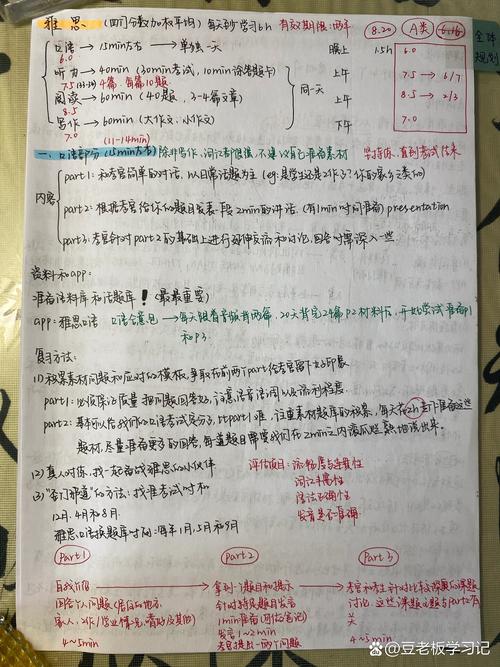 雅思 (四门分数加权平均) 每天至少学习6h 有效期限:两年 8.20 A类 6.16 全阵规划
口语 → 15min左右 → 单独一天 晚上 1.5h 6.0
6.0
听力 → 40min (30min考试, 10min涂答题卡) 上午 7.5 → 6/7
7.5 (33-34) 4篇, 每篇10题
阅读 → 60min (40题, 3-4篇文章) 同一天 上午 8.5 → 2/3
8.5
写作 → 60min (大作文、小作文) 下午 7.0
7.0
(11-14min)
一、口语部分 (15min左右) 除非写作、词汇都很强, 不建议自己准备素材 坚持练, 直到考试结束
内容
part1: 和考官简单的对话, 以日常话题为主 (eg: 是学生还是工作了? 你的家乡之类的)
part2: 根据考官给你的题目发表一段2min的讲话. (有1min时间准备) presentation
part3: 考官针对part2的基础上进行延伸交流和讨论, 回答时需深入一些
资料和app:
准备语料库和话题库! (最最重要)
app: 雅思口语 → 每天跟着音频背两篇, 20天背完24篇P2材料后, 开始尝试准备P1
和P3.
复习方法:
(1) 积累素材问题和应对的模板, 争取在前两个part给考官留下好印象
part1: 必须保证质量把问题回答好, 注意语音语调以及流利程度.
part2: 基本可给我们的口语考试定分了, 比part1难, 注重素材题库的积累, 每天花2h去准备这些
题材, 尽量准备更多的回答, 每道题目需要我们在2min之内滚瓜烂熟地说出来.
(2) 真人对练, 找一起备战雅思的小伙伴 评估项目: 流畅度与连贯性
词汇丰富性
(3) "旁门邪道"的方法: 找准考试时间 语法正确性
12月、4月和8月. 发音是否准确
雅思口语换题库时间: 每年1月、5月和9月
Part1 Part2 Part3
自我介绍 → 拿到话题目和提示 → 考官和考生针对比较深奥的课题
回答个人问题 (居住的地方、 针对特定题目发言 讨论, 这些课题和题与Part2有
家人、工作/学业情况、爱好及其他) 1min准备 (可做笔记) 关
发言1~2min
4~5min 考官提出一两个问题 4~5min
豆老板学习记